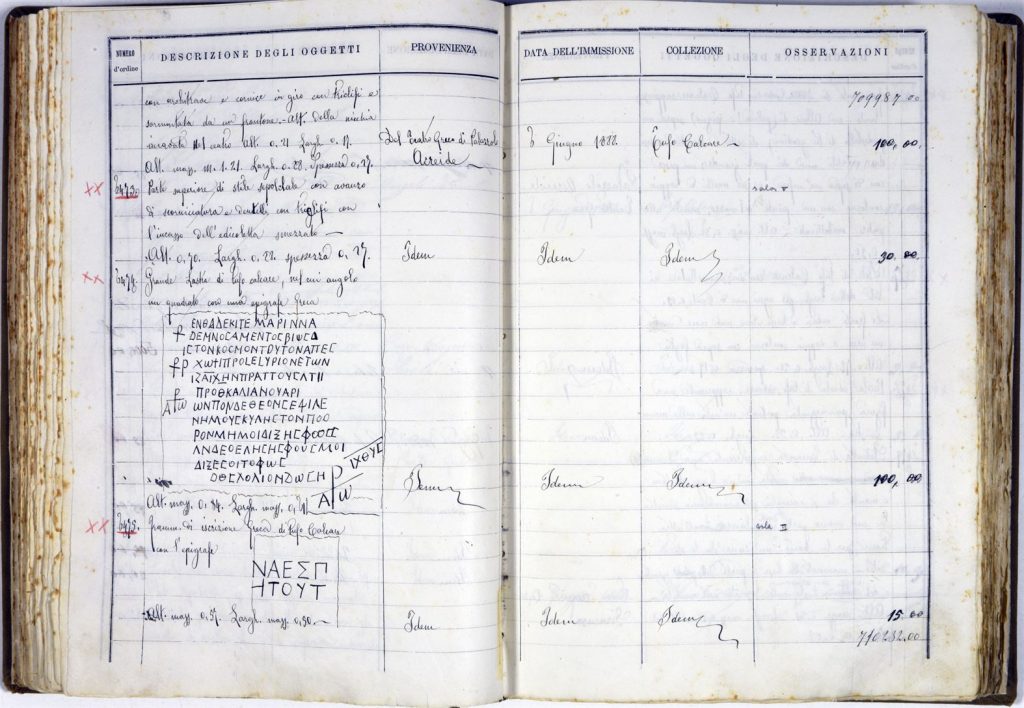 NUMERO d'ordine
DESCRIZIONE DEGLI OGGETTI
PROVENIENZA
DATA DELL'IMMISSIONE
COLLEZIONE
OSSERVAZIONI
709987.00
con architrave e cornice in giro con triglifi e
sormontata da un frontone. - Alt. della nicchia
incavata nel centro Alt. 0,21 Largh. 0,17.
Alt. mass. m. 1.21. Largh. 0.28. Spessezza 0,27.
Dal Teatro Greco di Palazzolo
Acreide
6 Giugno 1888
Tufo Calcare
100,00
xx
6473.
Parte superiore di stile sepolcrale con avanzo
di scorniciatura e dentelli con triglifi con
l'incasso dell'edicoletta smezzato
Alt. 0,70. Largh. 0.22. spessezza 0,27.
Idem
Idem
Idem
sala V
30.00
xx
6474.
Grande Lastra di tufo calcare, nel cui angolo
un quadrato con una epigrafe Greca
ΕΝΘΑΔΕΚΙΤΕΜΑΡΙΝΝΑ
ΔΕΜΝΟCΑΜΕΝΤΟCΒΙѠCΔ
ΙCΤΟΝΚΟCΜΟΝΤΟΥΤΟΝΑΠΕC
ΧѠΙΠΡΟLΕLΥΡΙΟΝΕΤѠΝ
ΙΖΑΪΧΗΝΠΡΑΤΤΟΥCΛΤΙΙ
ΠΡΟΘΚΑΛΙΑΝΟΥΑΡΙ
Α Ѡ
ѠΝΠΟΝΔΕΘΕΟΝCΕΨΙΛΕ
ΝΗΜΟΥCΚΥΛΗCΤΟΝΠΟΟ
ΡΟΝΜΗΜΟΙΔΙΞΗCΦѠCC
ΛΝΔΕΟΕΛΗCΗCΦΟΥCΜΟΙ
ΔΙΞΕCΟΙΤΟΦѠC
ΟΘCΧΟΛΙΟΝΔѠCΗ
ΙΧΘΥC
Α Ѡ
Alt. mass. 0,84. Largh. mass. 0,71
Idem
Idem
Idem
100,00
xx
6475.
Framm. di iscrizione Greca di tufo Calcare
con l'epigrafe
sala II
ΝΑΕΣΠ
ΗΤΟΥΤ
Alt. mass. 0,37. Largh. mass. 0,30
Idem
Idem
Idem
15.00
710232.00